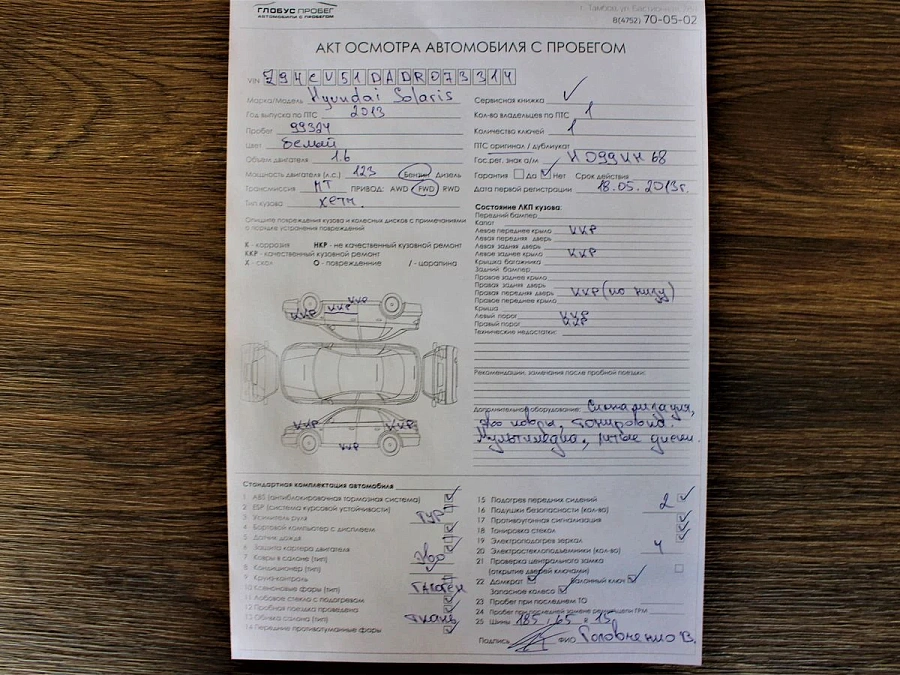 ГЛОБУС ПРОБЕГ
АВТОМОБИЛИ С ПРОБЕГОМ
г. Тамбов, ул.
8(4752) 70-05-02
АКТ ОСМОТРА АВТОМОБИЛЯ С ПРОБЕГОМ
VIN Z94CU51DADR073314
Марка/Модель Hyundai Solaris
Год выпуска по ПТС 2013
Пробег 99324
Цвет белый
Объем двигателя 1.6
Мощность двигателя (л.с.) 123 Бензин Дизель
Трансмиссия МТ ПРИВОД: AWD FWD RWD
Тип кузова хетч.
Опишите повреждения кузова и колесных дисков с примечаниями
о порядке устранения повреждений
X - коррозия НКР - не качественный кузовной ремонт
ККР - качественный кузовной ремонт
X - скол О - повреждение / - царапина
ККР ККР ККР
ККР ККР
ККР
Сервисная книжка
Кол-во владельцев по ПТС 1
Количество ключей 1
ПТС оригинал / дубликат
Гос.рег. знак а/м Н 099 КН 68
Гарантия Да Нет Срок действия
Дата первой регистрации 18.05.2013г.
Состояние ЛКП кузова:
Передний бампер
Капот
Левое переднее крыло ККР
Левая передняя дверь
Левая задняя дверь
Левое заднее крыло ККР
Крышка багажника
Задний бампер
Правое заднее крыло
Правая задняя дверь
Правая передняя дверь ККР (по низу)
Правое переднее крыло
Крыша
Левый порог ККР
Правый порог ККР
Технические недостатки:
Рекомендации, замечания после пробной поездки:
Дополнительное оборудование: Сигнализация,
эво ковры, тонировка.
Мультимедиа, литые диски.
Стандартная комплектация автомобиля
1 ABS (антиблокировочная тормозная система)
2 ESP (система курсовой устойчивости)
3 Усилитель руля ГУР
4 Бортовой компьютер с дисплеем
5 Датчик дождя
6 Защита картера двигателя
7 Ковры в салоне (тип) Эво
8 Кондиционер (тип)
9 Круиз-контроль
10 Ксеноновые фары (тип) Галоген
11 Лобовое стекло с подогревом
12 Пробная поездка проведена
13 Обивка салона (тип) Ткань
14 Передние противотуманные фары
15 Подогрев передних сидений
16 Подушки безопасности (кол-во) 2
17 Противоугонная сигнализация
18 Тонировка стекол
19 Электроподогрев зеркал
20 Электростеклоподъемники (кол-во) 4
21 Проверка центрального замка
(открытие дверей ключами)
22 Домкрат Балонный ключ
Запасное колесо
23 Пробег при последнем ТО
24 Пробег при последней замене ремня/цепи ГРМ
25 Шины 185, 65 = 15
Подпись ФИО Головченко В.